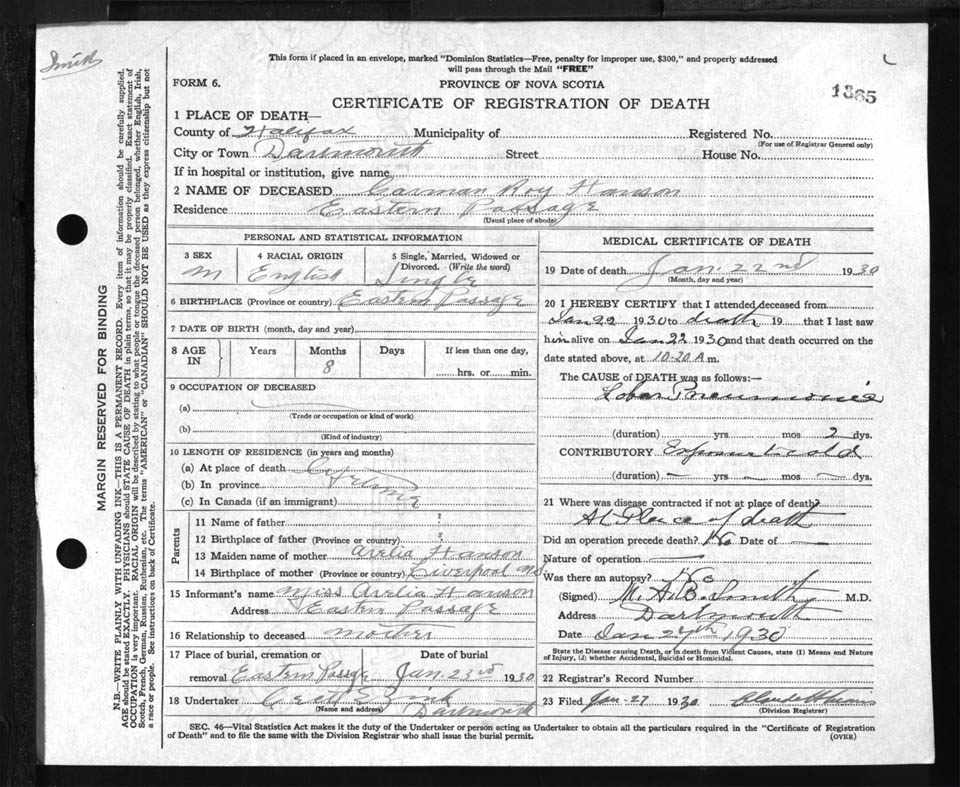 Smith
This form if placed in an envelope, marked "Dominion Statistics—Free, penalty for improper use, $300," and properly addressed
will pass through the Mail "FREE"
FORM 6.
PROVINCE OF NOVA SCOTIA
1365
CERTIFICATE OF REGISTRATION OF DEATH
1 PLACE OF DEATH—
County of Halifax Municipality of Registered No.
(For use of Registrar General only)
City or Town Dartmouth Street House No.
If in hospital or institution, give name
2 NAME OF DECEASED Carman Roy Hanson
Residence Eastern Passage
(Usual place of abode)
MARGIN RESERVED FOR BINDING
N.B.—WRITE PLAINLY WITH UNFADING INK—THIS IS A PERMANENT RECORD. Every item of information should be carefully supplied.
AGE should be stated EXACTLY. PHYSICIANS should STATE CAUSE OF DEATH in plain terms, so that it may be properly classified. Exact statement of
OCCUPATION is very important. RACIAL ORIGIN will be described by stating to what people or tongue the deceased person belonged, whether English, Irish,
Scotch, French, German, Russian, Ruthenian, etc. The terms "AMERICAN" or "CANADIAN" SHOULD NOT BE USED as they express citizenship but not
a race or people. See instructions on back of Certificate.
PERSONAL AND STATISTICAL INFORMATION
3 SEX
M
4 RACIAL ORIGIN
English
5 Single, Married, Widowed or
Divorced. (Write the word)
Single
6 BIRTHPLACE (Province or country) Eastern Passage
7 DATE OF BIRTH (month, day and year)
8 AGE IN
Years
Months
8
Days
If less than one day,
hrs. or min.
9 OCCUPATION OF DECEASED
(a)
(Trade or occupation or kind of work)
(b)
(Kind of industry)
10 LENGTH OF RESIDENCE (in years and months)
(a) At place of death
(b) In province
(c) In Canada (if an immigrant)
Parents
11 Name of father ?
12 Birthplace of father (Province or country) ?
13 Maiden name of mother Arelia Hanson
14 Birthplace of mother (Province or country) Liverpool N.S.
15 Informant's name Miss Arelia Hanson
Address Eastern Passage
16 Relationship to deceased mother
17 Place of burial, cremation or Date of burial
removal Eastern Passage Jan. 23rd 1930
18 Undertaker Zink
(Name and address) Dartmouth
MEDICAL CERTIFICATE OF DEATH
19 Date of death Jan 22nd 1930
(Month, day and year)
20 I HEREBY CERTIFY that I attended deceased from
Jan 22 1930 to death 19 that I last saw
him alive on Jan 22 1930 and that death occurred on the
date stated above, at 10.20 A m.
The CAUSE of DEATH was as follows:—
Lobar Pneumonia
(duration) yrs mos 2 dys.
CONTRIBUTORY Exposure cold
(duration) — yrs — mos — dys.
21 Where was disease contracted if not at place of death?
At Place of death
Did an operation precede death? No Date of —
Nature of operation —
Was there an autopsy? No
(Signed) M. A. B. Smith M.D.
Address Dartmouth
Date Jan 27th 1930
State the Disease causing Death, or in death from Violent Causes, state (1) Means and Nature
of Injury, (2) whether Accidental, Suicidal or Homicidal.
22 Registrar's Record Number
23 Filed Jan. 27 1930
(Division Registrar)
SEC. 46—Vital Statistics Act makes it the duty of the Undertaker or person acting as Undertaker to obtain all the particulars required in the "Certificate of Registration
of Death" and to file the same with the Division Registrar who shall issue the burial permit.
(OVER)